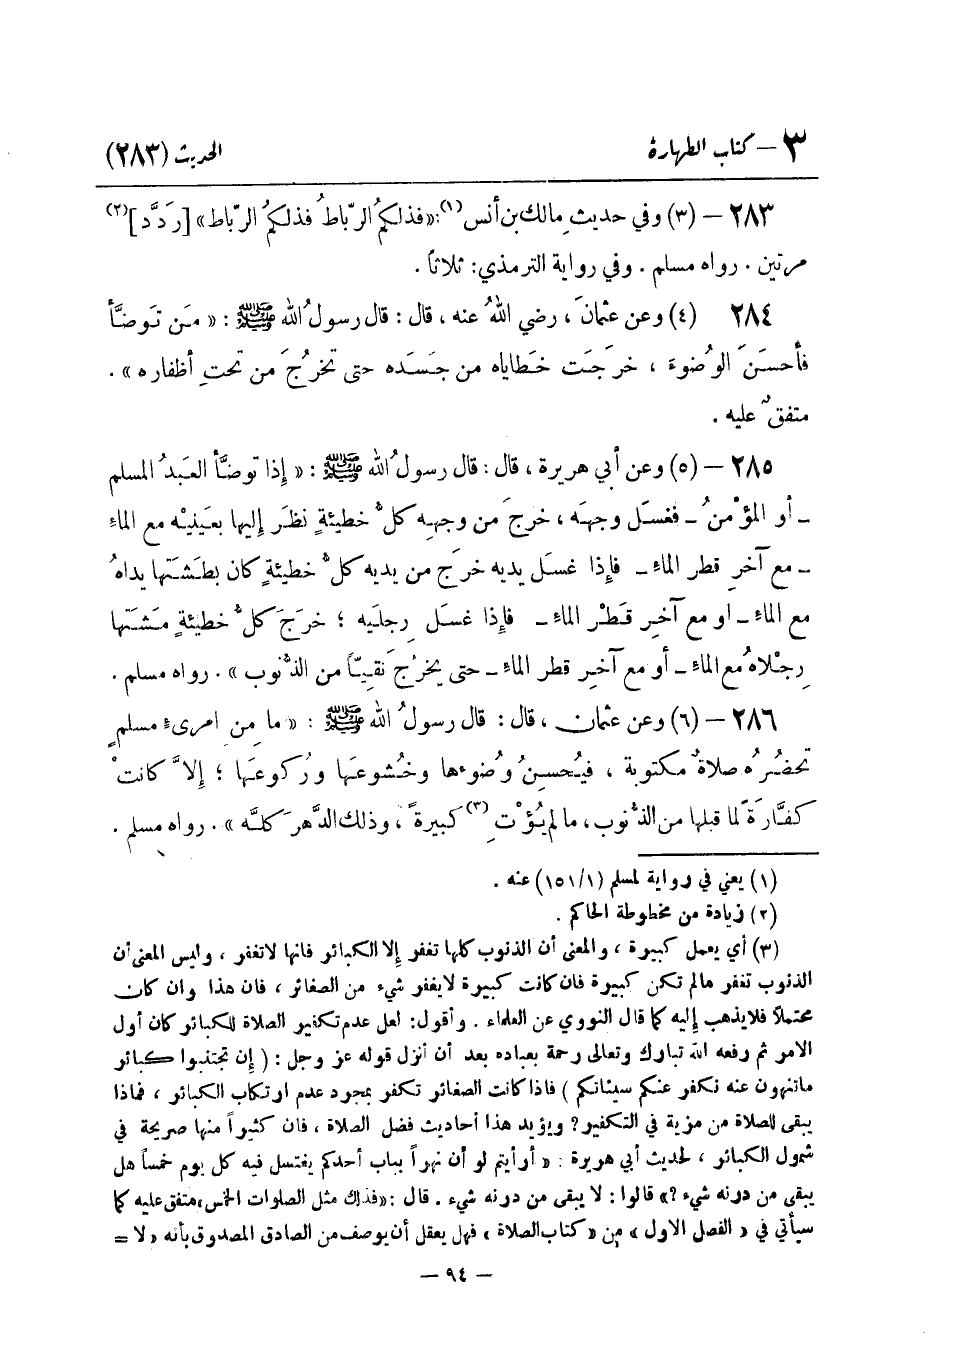 ٣ – كتاب الطهارة الحديث (٢٨٣)
٢٨٣ – (٣) وفي حديثِ مالك بن أنس(١): «فذلكمُ الرّباطُ فذلكمُ الرّباط» [رَدَّد](٢)
مرتين . رواه مسلم . وفي رواية الترمذي: ثلاثاً .
٢٨٤ (٤) وعن عثمانَ ، رضي اللهُ عنه ، قال : قال رسولُ الله ﷺ : « مَن تَوضَّأ
فأحسَنَ الوُضوءَ ، خرَجَت خَطاياه من جَسَده حتى تخرُجَ من تحتِ أظفاره » .
متفقٌ عليه .
٢٨٥ – (٥) وعن أبي هريرة ، قال : قال رسولُ الله ﷺ : « إذا توضَّأ العَبدُ المسلم
ـ أو المؤْمنُ ـ فغسَل وجهَه ، خرجَ من وجهِه كلُّ خطيئةٍ نظَر إليها بعَينيْه مع الماءِ
ـ مع آخرِ قطر الماءِ ـ فإذا غسَل يديه خرَج من يديه كلُّ خطيئةٍ كان بطَشَتها يداهُ
مع الماءِ ـ او مع آخِر قَطْر الماءِ ـ فإذا غسَل رِجلَيه ؛ خرَجَ كلُّ خطيئةٍ مَشَتها
رِجْلاهُ مع الماءِ ـ أو مع آخِر قطر الماءِ ـ حتى يخرُجَ نقيّاً من الذُّنوب » . رواه مسلم .
٢٨٦ – (٦) وعن عثمان ، قال : قال رسولُ الله ﷺ : « ما مِن امرىءٍ مسلمٍ
تحضُرُه صلاةٌ مكتوبة ، فيُحسِنُ وُضوءها وخُشوعَها ورُكوعَها ؛ إلاَّ كانتْ
كفَّارَةً لما قبلها من الذُّنوب، ما لم يُؤْتِ(٣) كبيرةً ، وذلك الدَّهرَ كلَّه » . رواه مسلم .
(١) يعني في رواية لمسلم (١/١٥١) عنه .
(٢) زيادة من مخطوطة الحاكم .
(٣) أي يعمل كبيرة ، والمعنى أن الذنوب كلها تغفر إلا الكبائر فانها لاتغفر ، وليس المعنى أن
الذنوب تغفر مالم تكن كبيرة فان كانت كبيرة لايغفر شيء من الصغائر ، فان هذا وان كان
محتملاً فلايذهب إليه كما قال النووي عن العلماء . وأقول: لعل عدم تكفير الصلاة للكبائر كان أول
الامر ثم رفعه الله تبارك وتعالى رحمة بعباده بعد أن أنزل قوله عز وجل : ( إن تجتنبوا كبائر
ماتنهون عنه نكفر عنكم سيئاتكم ) فاذا كانت الصغائر تكفر بمجرد عدم ارتكاب الكبائر ، فماذا
يبقى للصلاة من مزية في التكفير؟ ويؤيد هذا أحاديث فضل الصلاة ، فان كثيراً منها صريحة في
شمول الكبائر ، لحديث أبي هريرة : « أرأيتم لو أن نهراً بباب أحدكم يغتسل فيه كل يوم خمساً هل
يبقى من درنه شيء ؟» قالوا : لا يبقى من درنه شيء . قال : «فذلك مثل الصلوات الخمس» متفق عليه كما
سيأتي في « الفصل الاول » من « كتاب الصلاة » فهل يعقل أن يوصف من الصادق المصدوق بأنه « لا =
– ٩٤ –